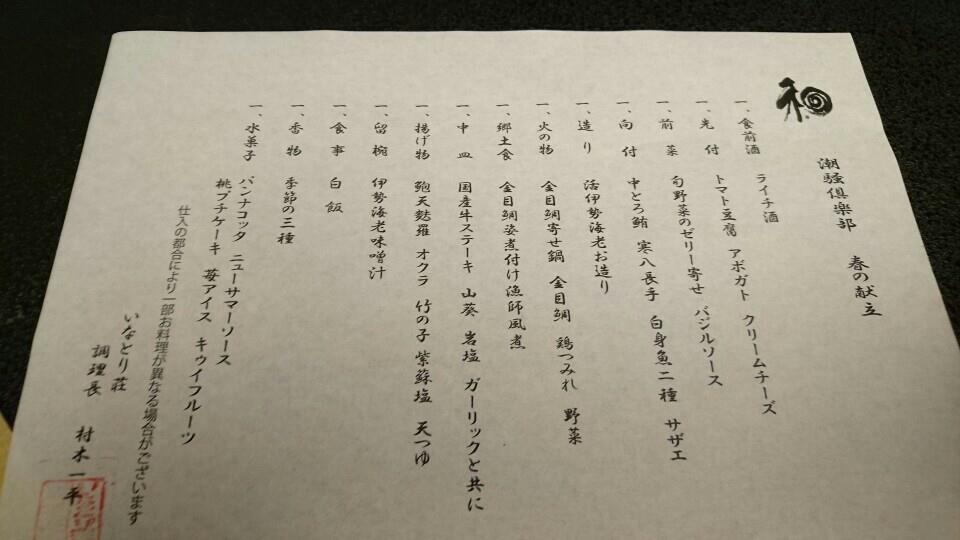 和
潮騒倶楽部 春の献立
一、食前酒 ライチ酒
一、先付 トマト豆腐 アボガト クリームチーズ
一、前菜 旬野菜のゼリー寄せ バジルソース
一、向付 中とろ鮪 寒八長手 白身魚二種 サザエ
一、造り 活伊勢海老お造り
一、火の物 金目鯛寄せ鍋 金目鯛 鶏つみれ 野菜
一、郷土食 金目鯛姿煮付け漁師風煮
一、中皿 国産牛ステーキ 山葵 岩塩 ガーリックと共に
一、揚げ物 鮑天麩羅 オクラ 竹の子 紫蘇塩 天つゆ
一、留椀 伊勢海老味噌汁
一、食事 白飯
一、香物 季節の三種
一、水菓子 パンナコッタ ニューサマーソース
桃プチケーキ 苺アイス キゥイフルーツ
仕入の都合により一部お料理が異なる場合がございます
いなとり荘
調理長 村木一平